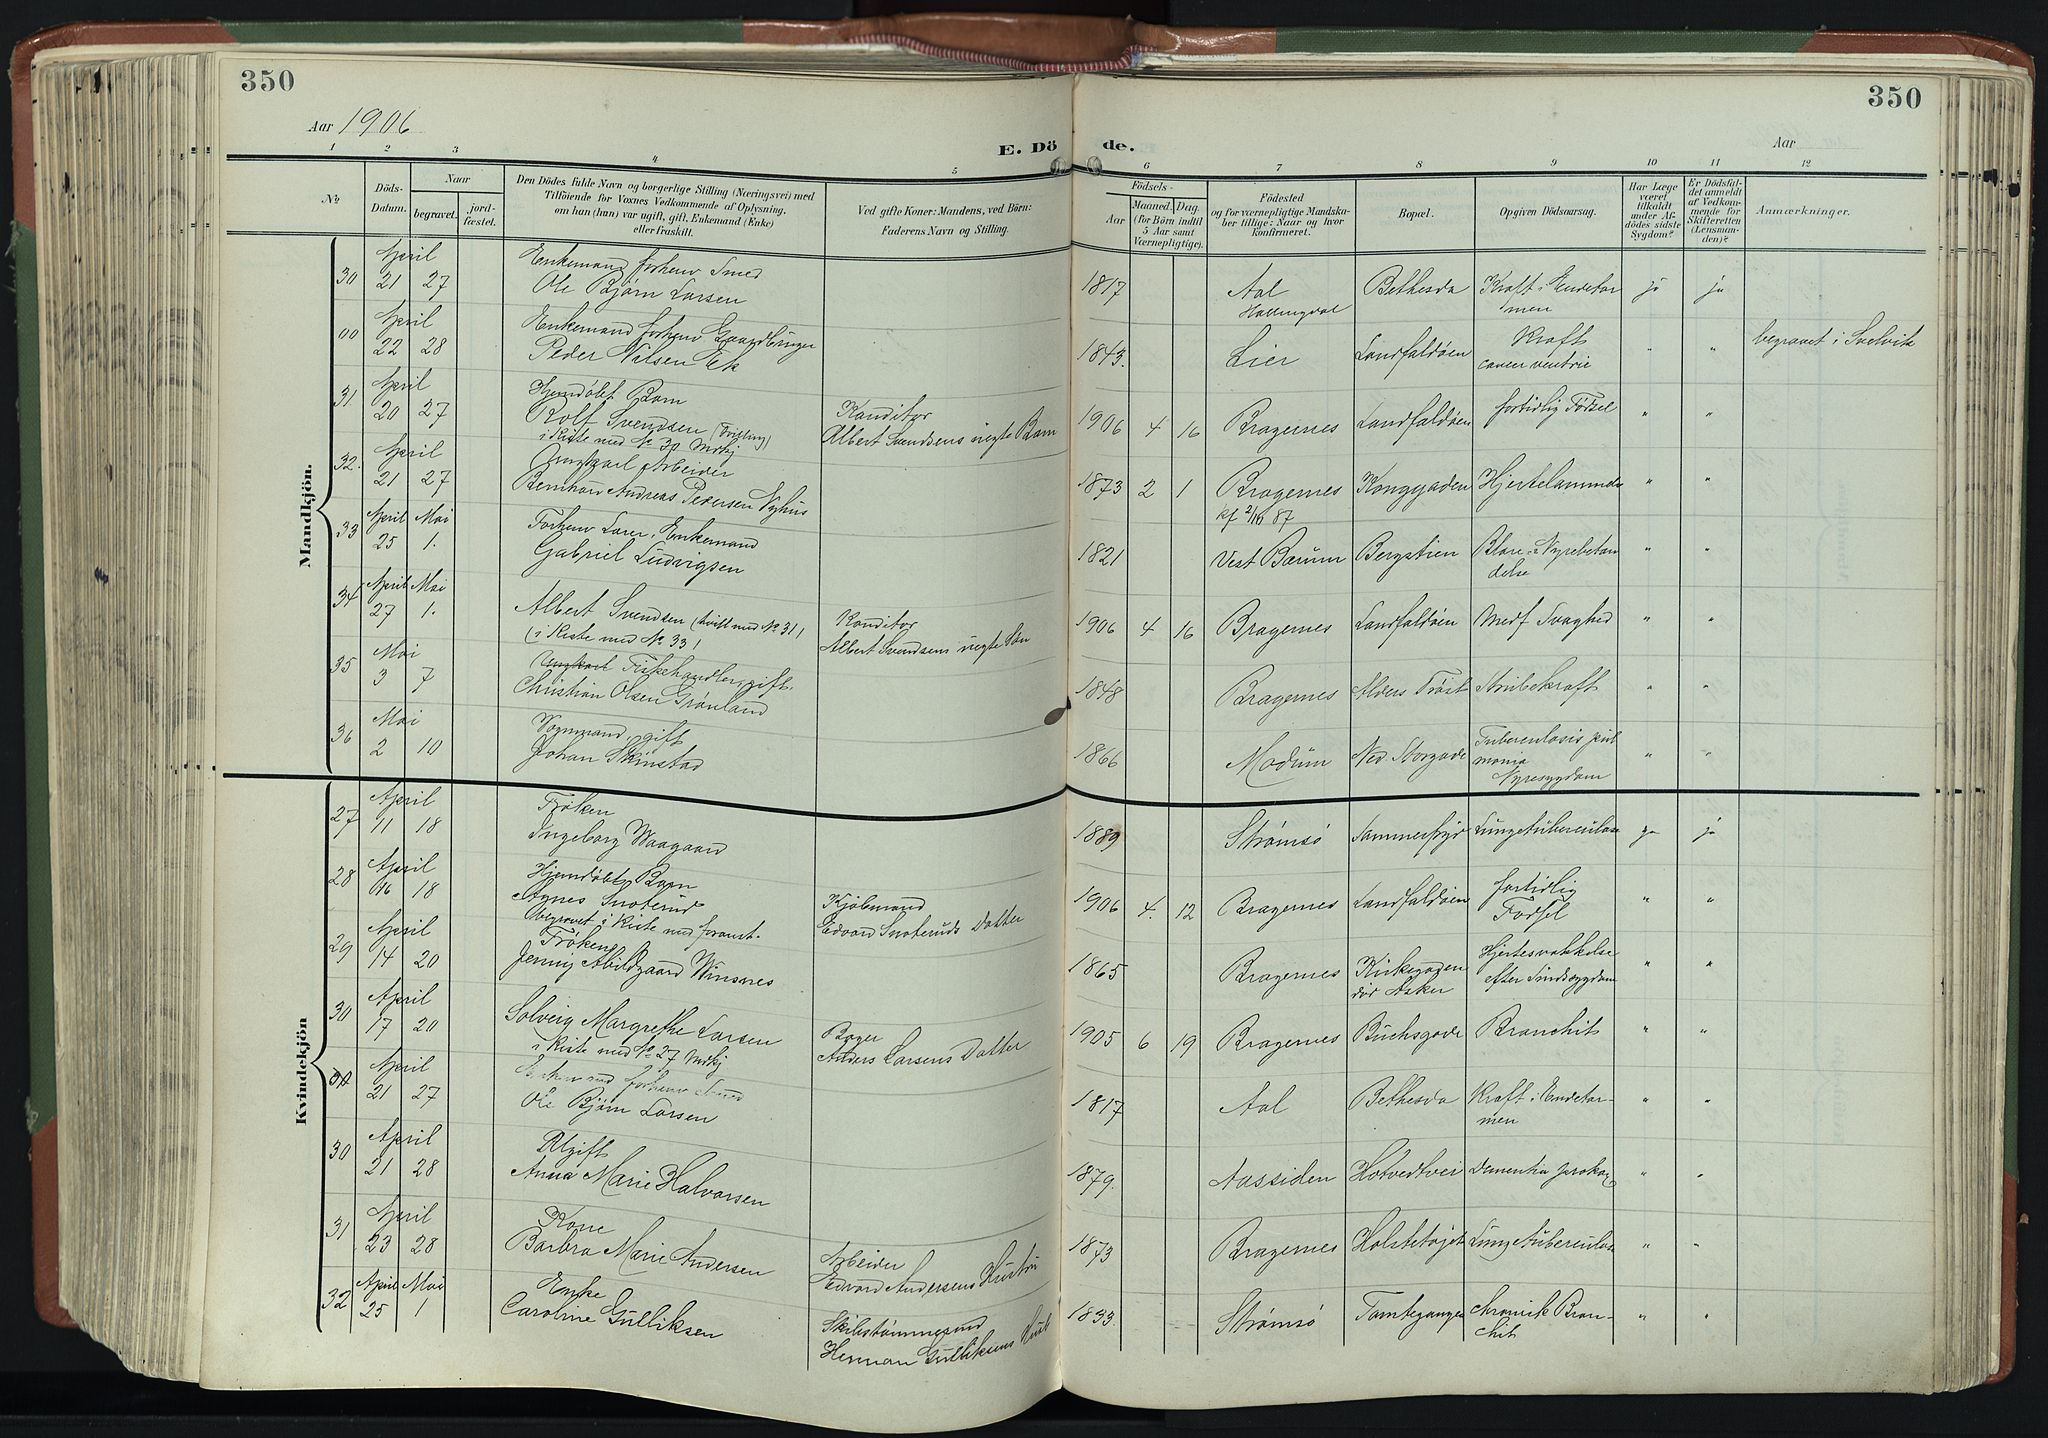 350
350
Aar 1906
Aar
E. Dö
de.
1 2 3 4 5 6 7 8 9 10 11 12
No
Döds-
Datum.
Naar
begravet.
jord-
fæstet.
Den Dödes fulde Navn og borgerlige Stilling (Næringsvei) med
Tilföiende for Voxnes Vedkommende af Oplysning,
om han (hun) var ugift, gift, Enkemand (Enke)
eller fraskilt.
Ved gifte Koner: Mandens, ved Börn:
Faderens Navn og Stilling.
Födsels-
Aar
Maaned. Dag.
(for Börn indtil
5 Aar samt
Værnepligtige).
Födested
og for værnepligtige Mandska-
ber tillige: Naar og hvor
konfirmeret.
Bopæl.
Opgiven Dödsaarsag.
Har Læge
været
tilkaldt
under Af-
dödes sidste
Sygdom?
Er Dödsfal-
det anmeldt
af Vedkom-
mende for
Skifteretten
(Lensman-
den)?
Anmærkninger.
Mandkjön.
April
30 21 27
Enkemand forhenv Smed
Ole Bjørn Larsen
1817 Aal Bethesda Kraft i Endetar
Hallingdal men ja ja
April
00 22 28
Enkemand forhenv Gaardbruger
Peder Nilsen Ek
1843. Lier Landfaldøen Kraft " " begravet i Svelvik
cancer ventric
April
31 20 27
Hjemdøbt Barn
Rolf Svendsen (Tvilling)
i Kiste med No 30 Mdkj
Konditor
Albert Svendsens uegte Barn
1906 4 16 Bragernes Landfaldøen fortidlig Fødsel " "
April
32. 21 27
Ungkarl Arbeider
Bernhard Andreas Pedersen Nyhus
1873 2 1 Bragernes Konggaden Hjertelammelse " "
kf 2/10 87
April Mai
33 25 1.
Forhenv Lærer, Enkemand
Gabriel Ludvigsen
1821 Vest Bærum Bergstien Blære i Nyrebetæn
delse " "
April Mai
34 27 1.
Albert Svendsen (tvill med No 31)
(i Kiste med No 33)
Konditor
Albert Svendsens uegte Søn
1906 4 16 Bragernes Landfaldøen Medf Svaghed " "
Mai
35 3 7
Ungkarl Fiskehandler, gift.
Christian Olsen Grønland
1848 Bragernes Alders Trøst Strubekraft " "
Mai
36 2 10
Vognmand, gift
Johan Skinstad
1866 Modum Ned. Storgade Tuberculosis pul
monia
Nyresygdom " "
Kvindekjön
April
27 11 18
Frøken
Ingeborg Waagaard
1889 Strømsø Sommerfryd Lungetuberculose ja ja
April
28 16 18
Hjemdøbt Barn
Agnes Snoterud
begravet i Kiste med foranst.
Kjøbmand
Edvard Snoteruds Datter
1906 4. 12 Bragernes Landfaldøen fortidlig
Fødsel " "
April
29 14 20
Frøken
Jenny Abildgaard Winsnes
1865 Bragernes Kirkegaden Hjertesvækkelse
død Asker efter Sindssygdom " "
April
30 17 20
Solveig Margrethe Larsen
i Kiste med No 27 Mdkj
Bager
Anders Larsens Datter
1905 6 19 Bragernes Buchsgade Bronchit " "
April
21 27
Enkemand forhenv Smed
Ole Bjørn Larsen
1817 Aal Bethesda Kraft i Endetar-
men " "
April
30 21 28
Ugift
Anna Marie Halvorsen
1879. Aassiden Hotvedtvei Dementia " "
April
31 23 28
Kone
Barbra Marie Andersen
Arbeider
Edvard Andersens Hustru
1873 Bragernes Lungetuberculose " "
April Mai
32 25 1
Enke
Caroline Gulliksen
Skibstømmermd
Herman Gulliksens
1833. Strømsø Tomtegangen chronisk Bron-
chit " "